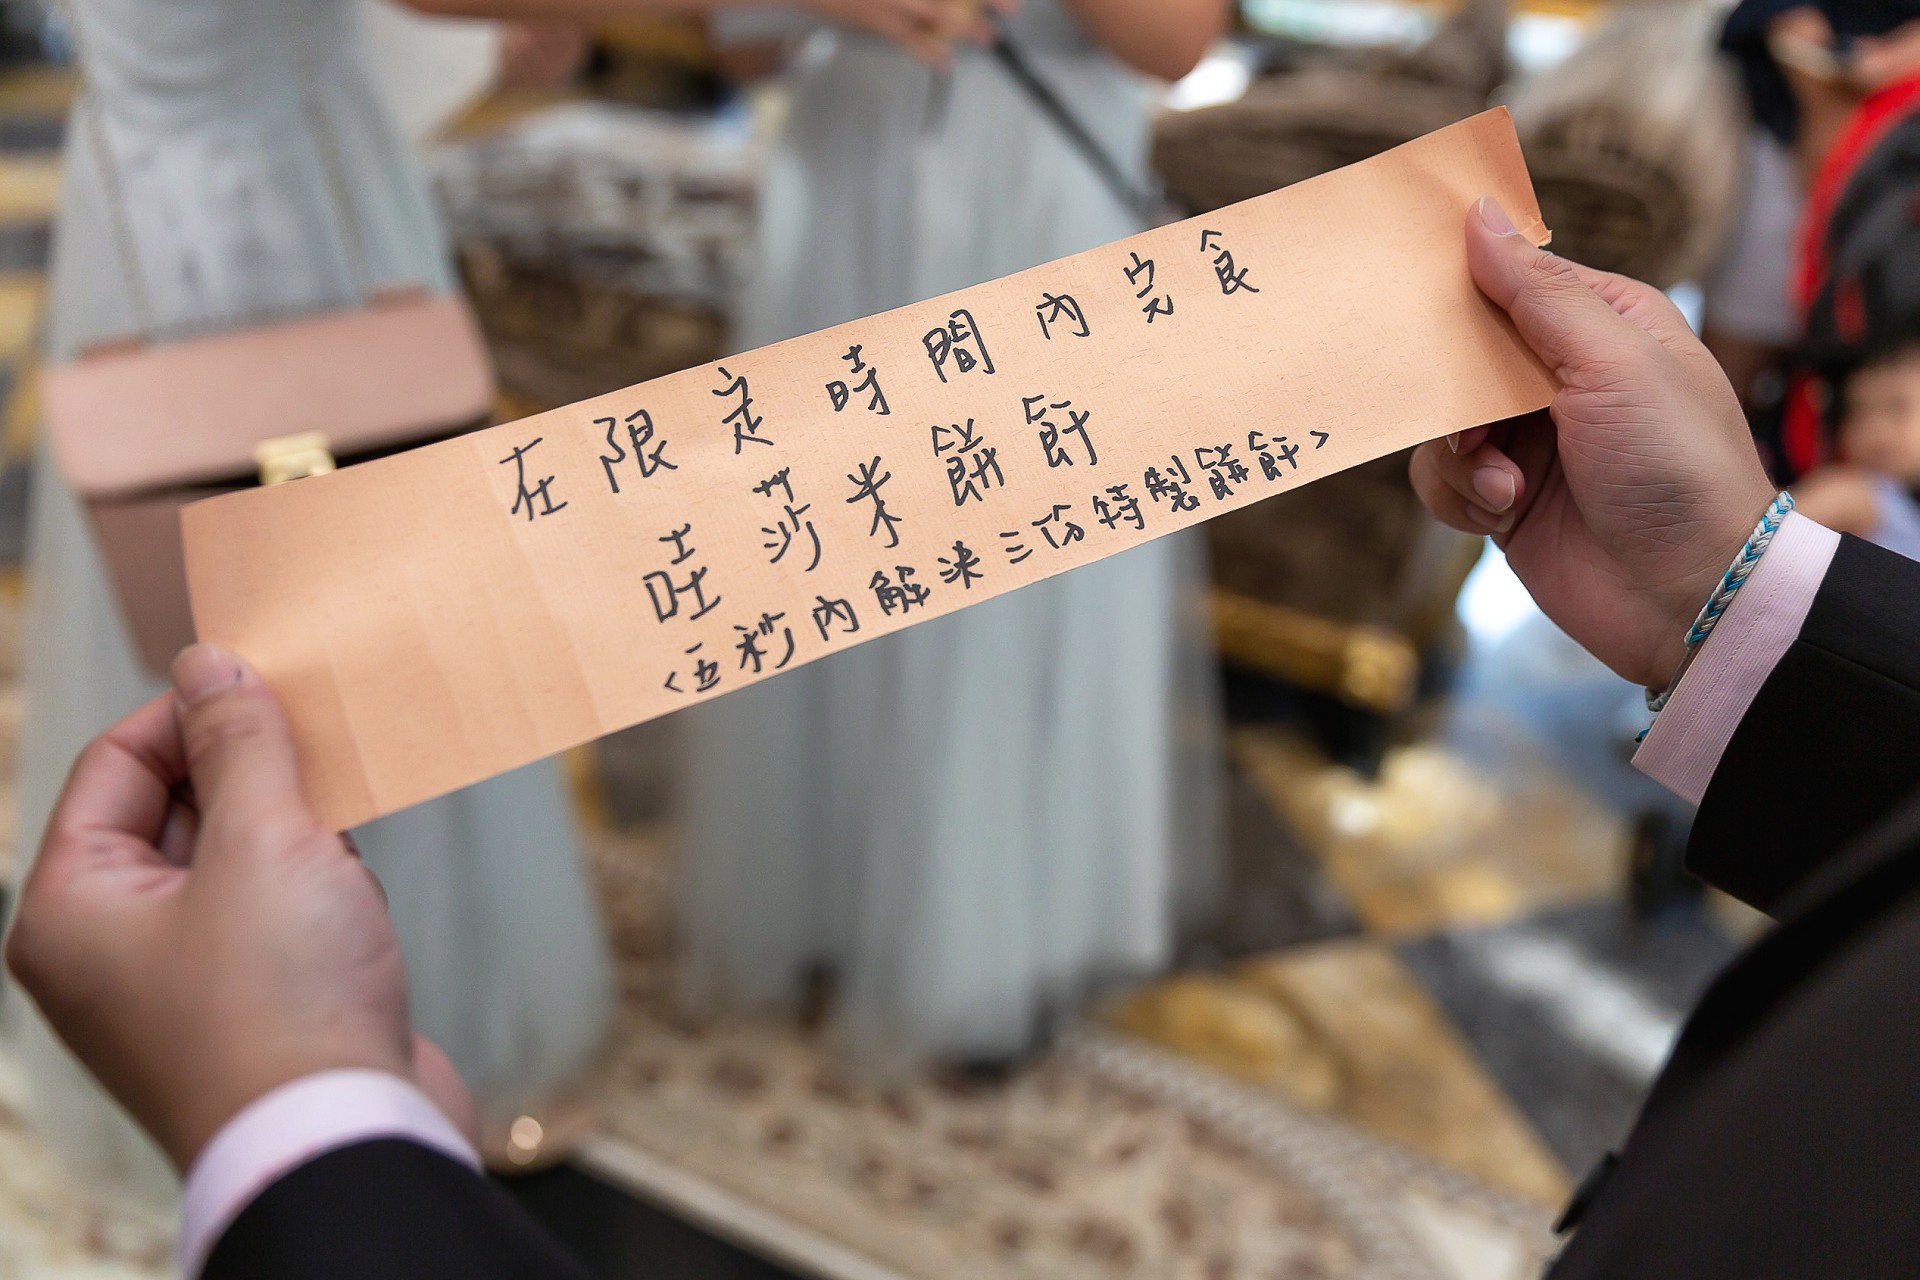 在限定時間內完食
吐莎米餅飦
<五秒內解決三份特製餅飦>